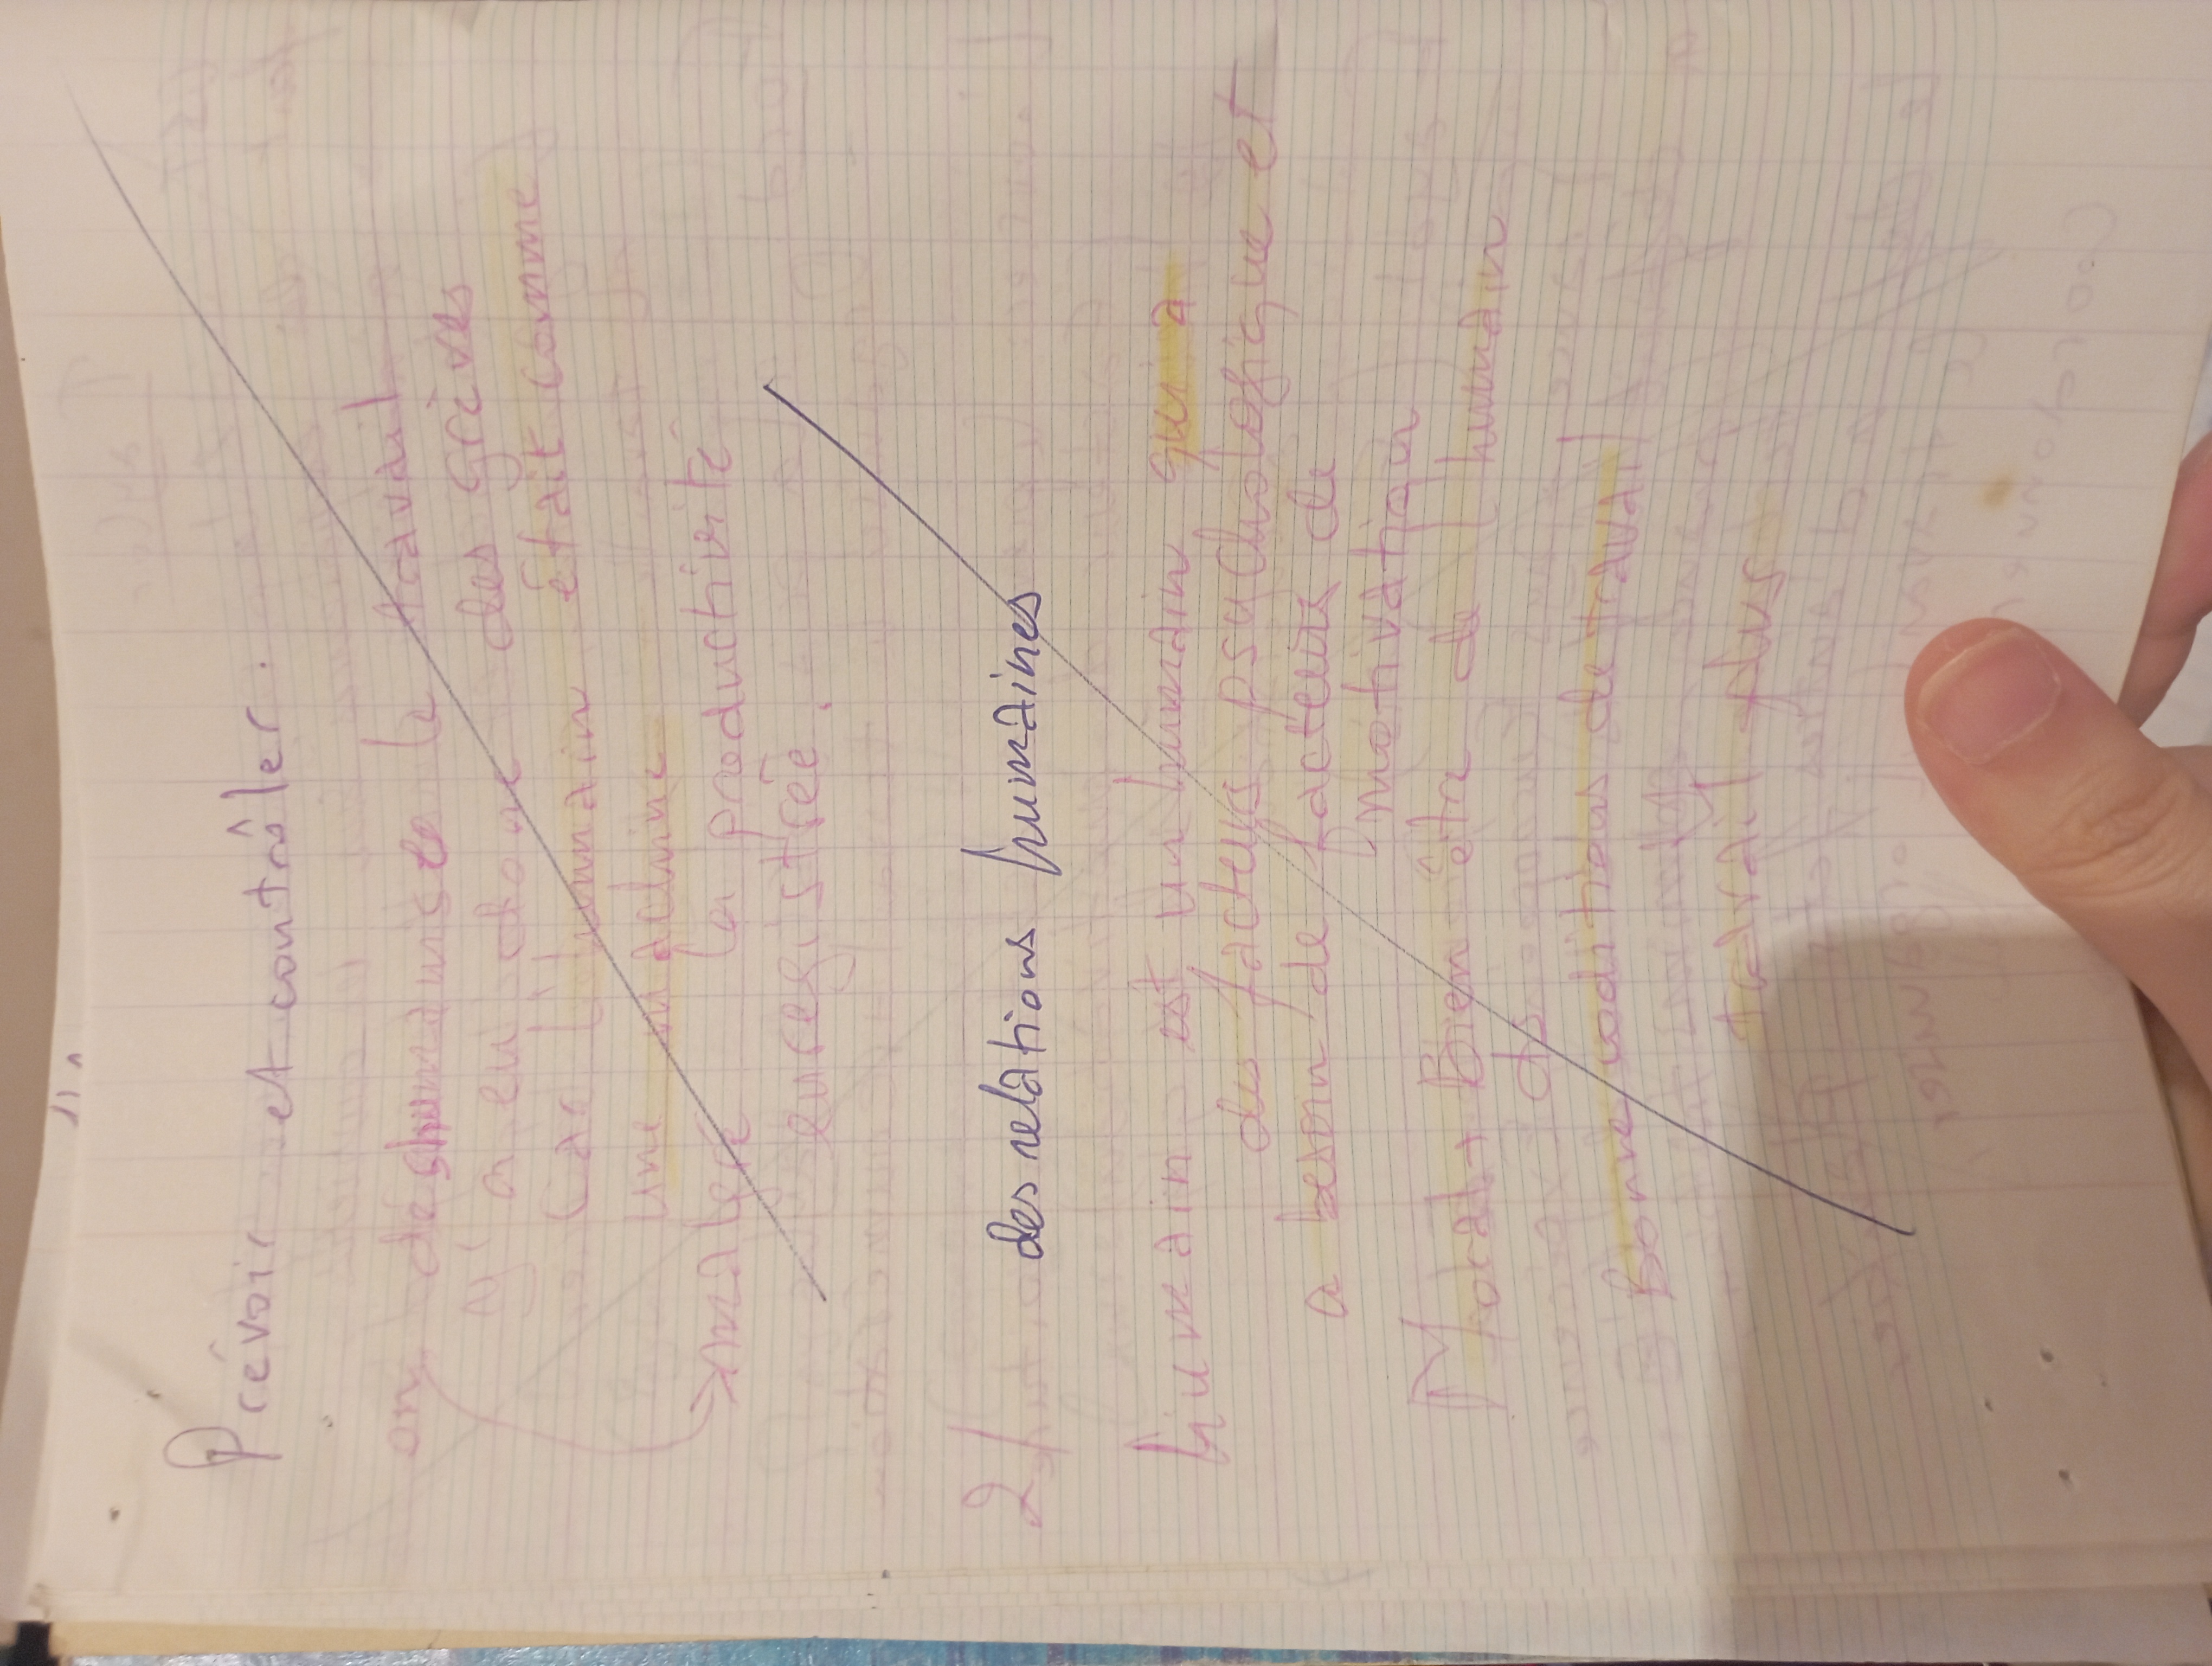 Prévoir et contrôler.
on déshumanise le travail
y'a eu donc des grèves
Car l'humain était comme
une machine
→ malgré la productivité
enregistrée.
2/ des relations humaines
humain est un humain qui a
des facteurs psychologique et
a besoin de facteurs de
motivation
Moral + Bien être de l'humain
ds
Bonne coditions de travail
travail plus